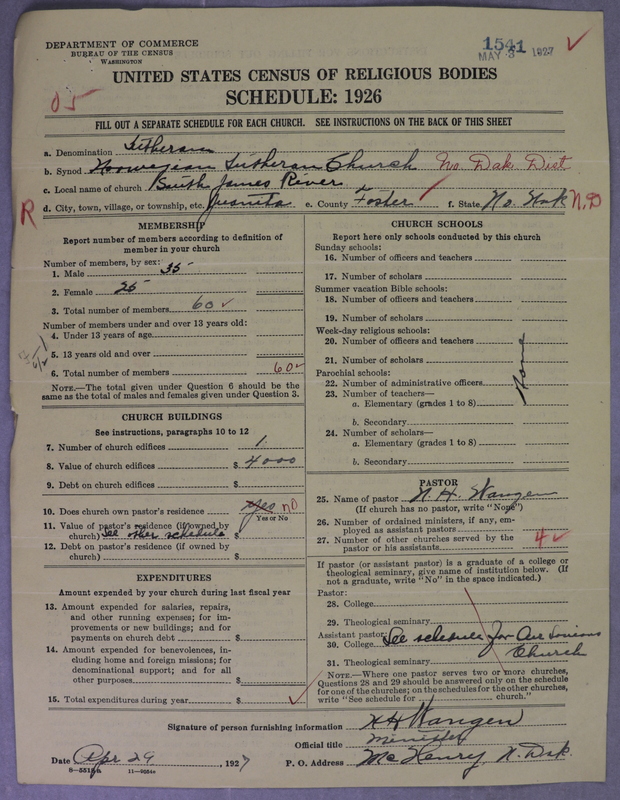 DEPARTMENT OF COMMERCE
BUREAU OF THE CENSUS
WASHINGTON
1541
MAY 3 1927
UNITED STATES CENSUS OF RELIGIOUS BODIES
SCHEDULE: 1926
05
FILL OUT A SEPARATE SCHEDULE FOR EACH CHURCH. SEE INSTRUCTIONS ON THE BACK OF THIS SHEET
a. Denomination Lutheran
b. Synod Norwegian Lutheran Church No. Dak. Dist
c. Local name of church South James River
d. City, town, village, or township, etc. Juanita e. County Foster f. State No. Dak N.D
R
MEMBERSHIP
Report number of members according to definition of member in your church
Number of members, by sex:
1. Male 35
2. Female 25
3. Total number of members 60
Number of members under and over 13 years old:
4. Under 13 years of age
5. 13 years old and over
6. Total number of members 60
NOTE.—The total given under Question 6 should be the same as the total of males and females given under Question 3.
CHURCH BUILDINGS
See instructions, paragraphs 10 to 12
7. Number of church edifices 1
8. Value of church edifices $ 4000
9. Debt on church edifices $
10. Does church own pastor's residence yes no
Yes or No
11. Value of pastor's residence (if owned by church) See other schedule $
12. Debt on pastor's residence (if owned by church) $
EXPENDITURES
Amount expended by your church during last fiscal year
13. Amount expended for salaries, repairs, and other running expenses; for improvements or new buildings; and for payments on church debt $
14. Amount expended for benevolences, including home and foreign missions; for denominational support; and for all other purposes $
15. Total expenditures during year $
CHURCH SCHOOLS
Report here only schools conducted by this church
Sunday schools:
16. Number of officers and teachers
17. Number of scholars
Summer vacation Bible schools:
18. Number of officers and teachers
19. Number of scholars
Week-day religious schools:
20. Number of officers and teachers
21. Number of scholars
Parochial schools:
22. Number of administrative officers
23. Number of teachers—
a. Elementary (grades 1 to 8)
b. Secondary
24. Number of scholars—
a. Elementary (grades 1 to 8)
b. Secondary
None
PASTOR
25. Name of pastor N. H. Wangen
(If church has no pastor, write "None")
26. Number of ordained ministers, if any, employed as assistant pastors
27. Number of other churches served by the pastor or his assistants 4
If pastor (or assistant pastor) is a graduate of a college or theological seminary, give name of institution below. (If not a graduate, write "No" in the space indicated.)
Pastor:
28. College
29. Theological seminary
Assistant pastor:
30. College See schedule for Our Saviours Church
31. Theological seminary
NOTE.—Where one pastor serves two or more churches, Questions 28 and 29 should be answered only on the schedule for one of the churches; on the schedules for the other churches, write "See schedule for church."
Signature of person furnishing information N H Wangen
Official title Minister
Date Apr 29, 1927 P. O. Address Mc Henry, N. Dak.
11—9654